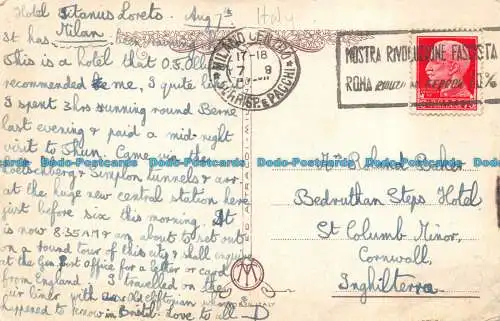 Hotel Titanus Loreto
Aug 7th
Italy
Milan
St has
This is a hotel that O.S.
recommended to me, I quite li
I spent 3 hrs running round Berne
last evening & paid a mid-night
visit to Thun. Came via the
Loetschberg & Simplon tunnels & arr.
at the huge new central station here
just before six this morning. It
is now 8.35 AM & am about to set out
on a round tour of this city & shall enquire
at the Gen. Post office for a letter or card
from England. I travelled on the
with an old
happened to know in Bristol. Love to all D
MILANO CENTRO
17-18
7 8
CORRISP. E PACCHI
MOSTRA RIVOLUZIONE FASCISTA
ROMA
%
Roland Baker
Bedruthan Steps Hotel
St Columb Minor,
Cornwall,
Inghilterra
Dodo-Postcards Dodo-Postcards Dodo-Postcards